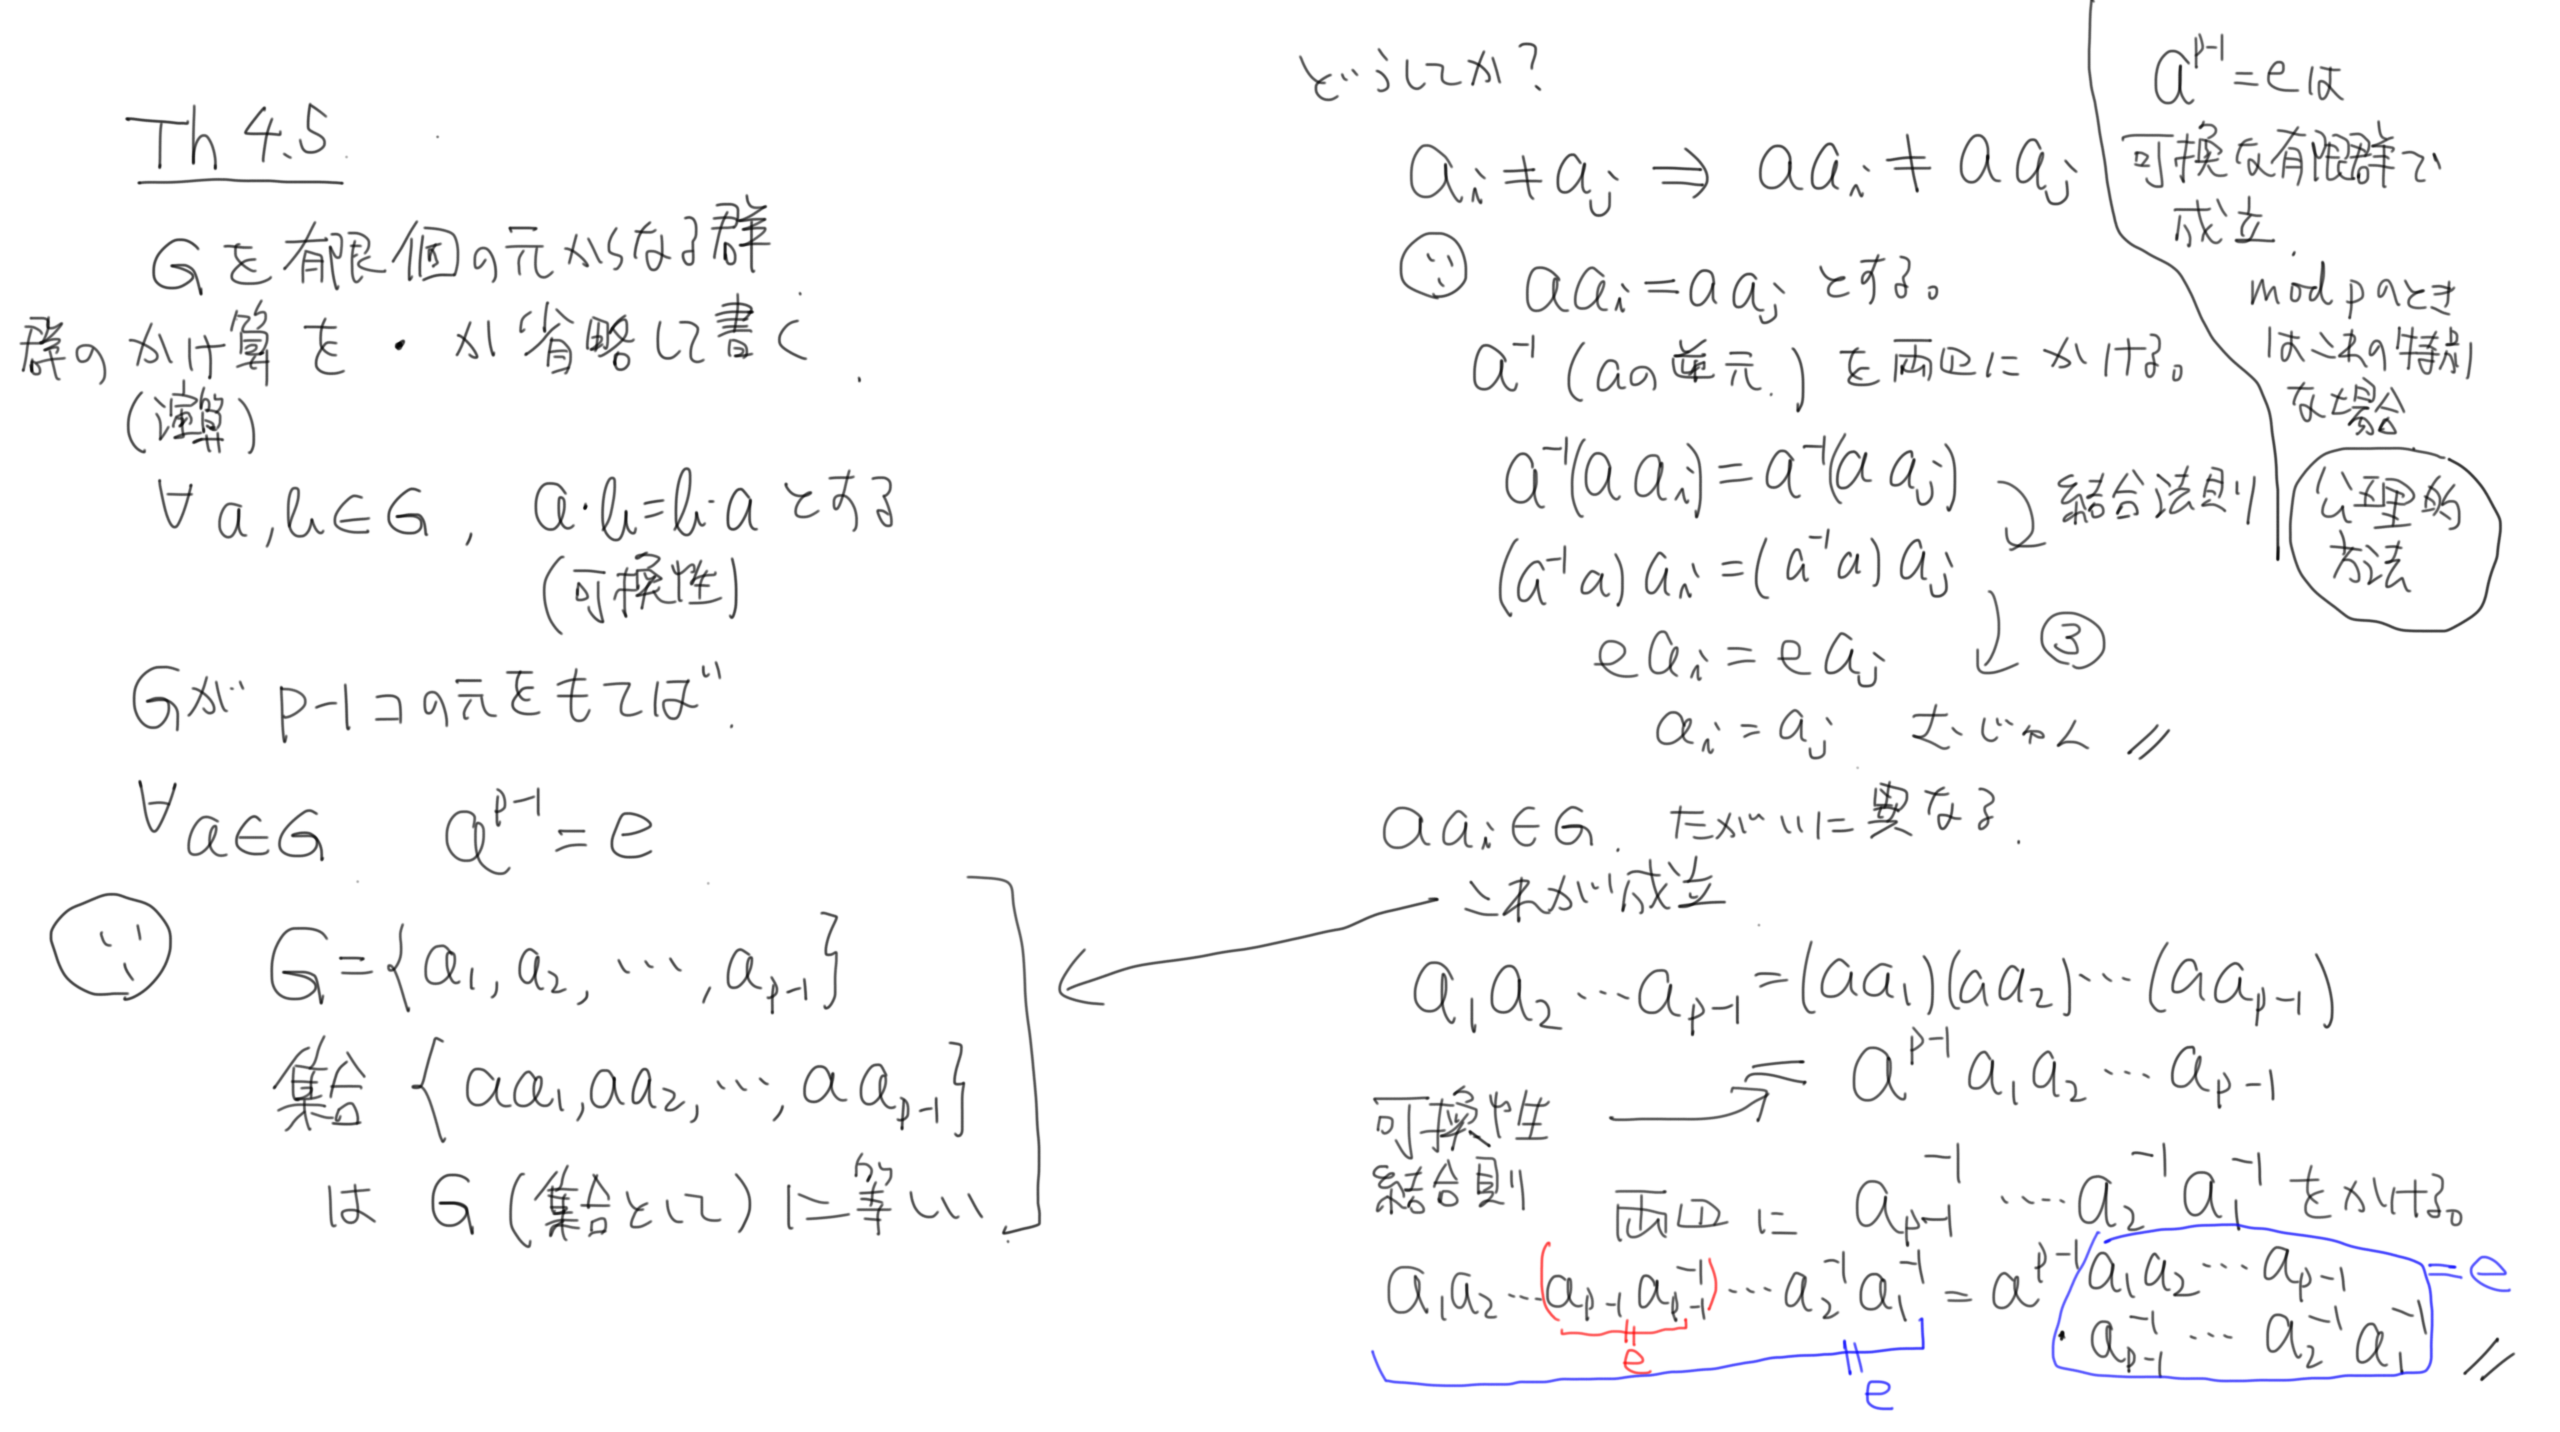 Th 4.5
Gを有限個の元からなる群
群のかけ算を・か省略して書く.
(演算)
∀a,b∈G, a・b=b・aとする
(可換性)
Gがp-1コの元をもてば.
∀a∈G a^{p-1}=e
∵ G={a_1,a_2,…,a_{p-1}}
集合{aa_1,aa_2,…,aa_{p-1}}
はG(集合として)に等しい
どうしてか?
a_i≠a_j ⇒ aa_i≠aa_j
∵ aa_i=aa_jとする。
a^{-1}(aの逆元.)を両辺にかける。
a^{-1}(aa_i)=a^{-1}(aa_j)
結合法則
(a^{-1}a)a_i=(a^{-1}a)a_j
③
ea_i=ea_j
a_i=a_j むじゅん //
aa_i∈G. たがいに異なる.
これが成立
a_1a_2…a_{p-1}=(aa_1)(aa_2)…(aa_{p-1})
=a^{p-1}a_1a_2…a_{p-1}
可換性
結合則
両辺にa_{p-1}^{-1}…a_2^{-1}a_1^{-1}をかける。
a_1a_2…(a_{p-1}a_{p-1}^{-1})…a_2^{-1}a_1^{-1}=a^{p-1}a_1a_2…a_{p-1}=e
・a_{p-1}^{-1}…a_2^{-1}a_1^{-1} //
=e
=e
a^{p-1}=eは
可換な有限群で
成立.
mod pのとき
はこれの特別
な場合
公理的
方法